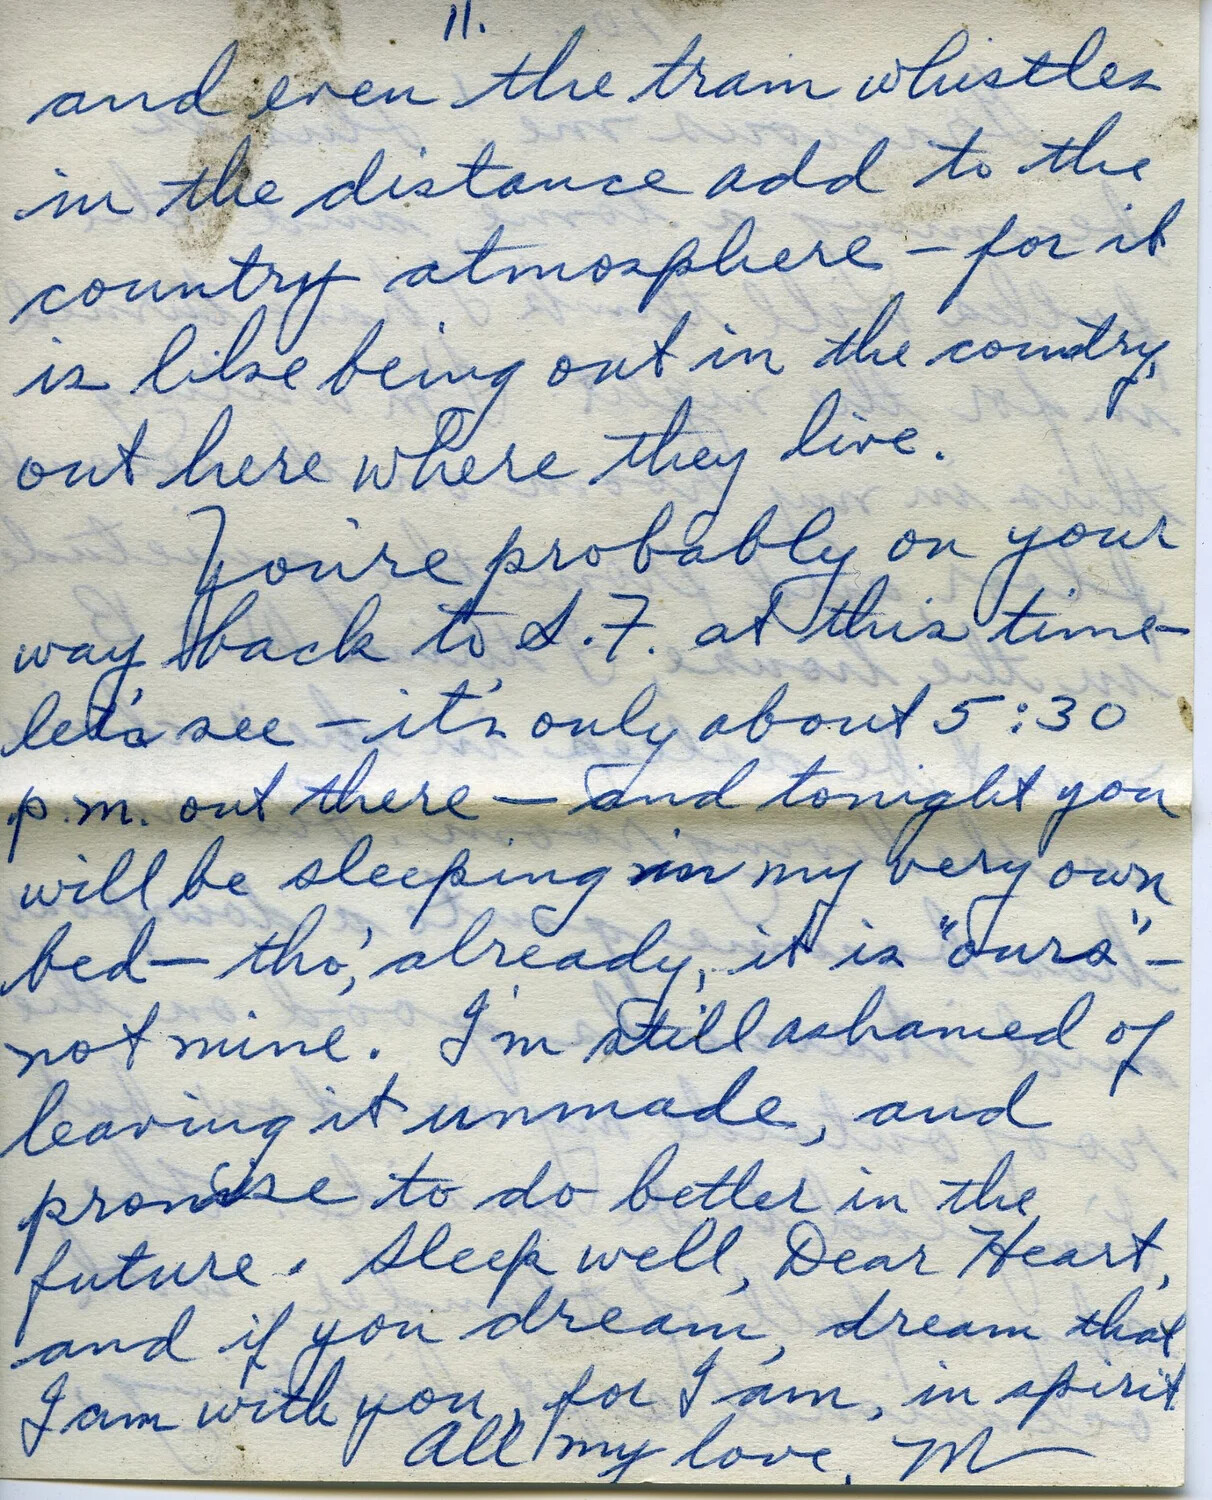 11.
and even the train whistles
in the distance add to the
country atmosphere – for it
is like being out in the country,
out here where they live.
You're probably on your
way back to S.F. at this time –
let's see – it's only about 5:30
p.m. out there – and tonight you
will be sleeping in my very own
bed – tho', already, it is "ours" –
not mine. I'm still ashamed of
leaving it unmade, and
promise to do better in the
future. Sleep well, Dear Heart,
and if you dream, dream that
I am with you, for I am, in spirit
All my love, M